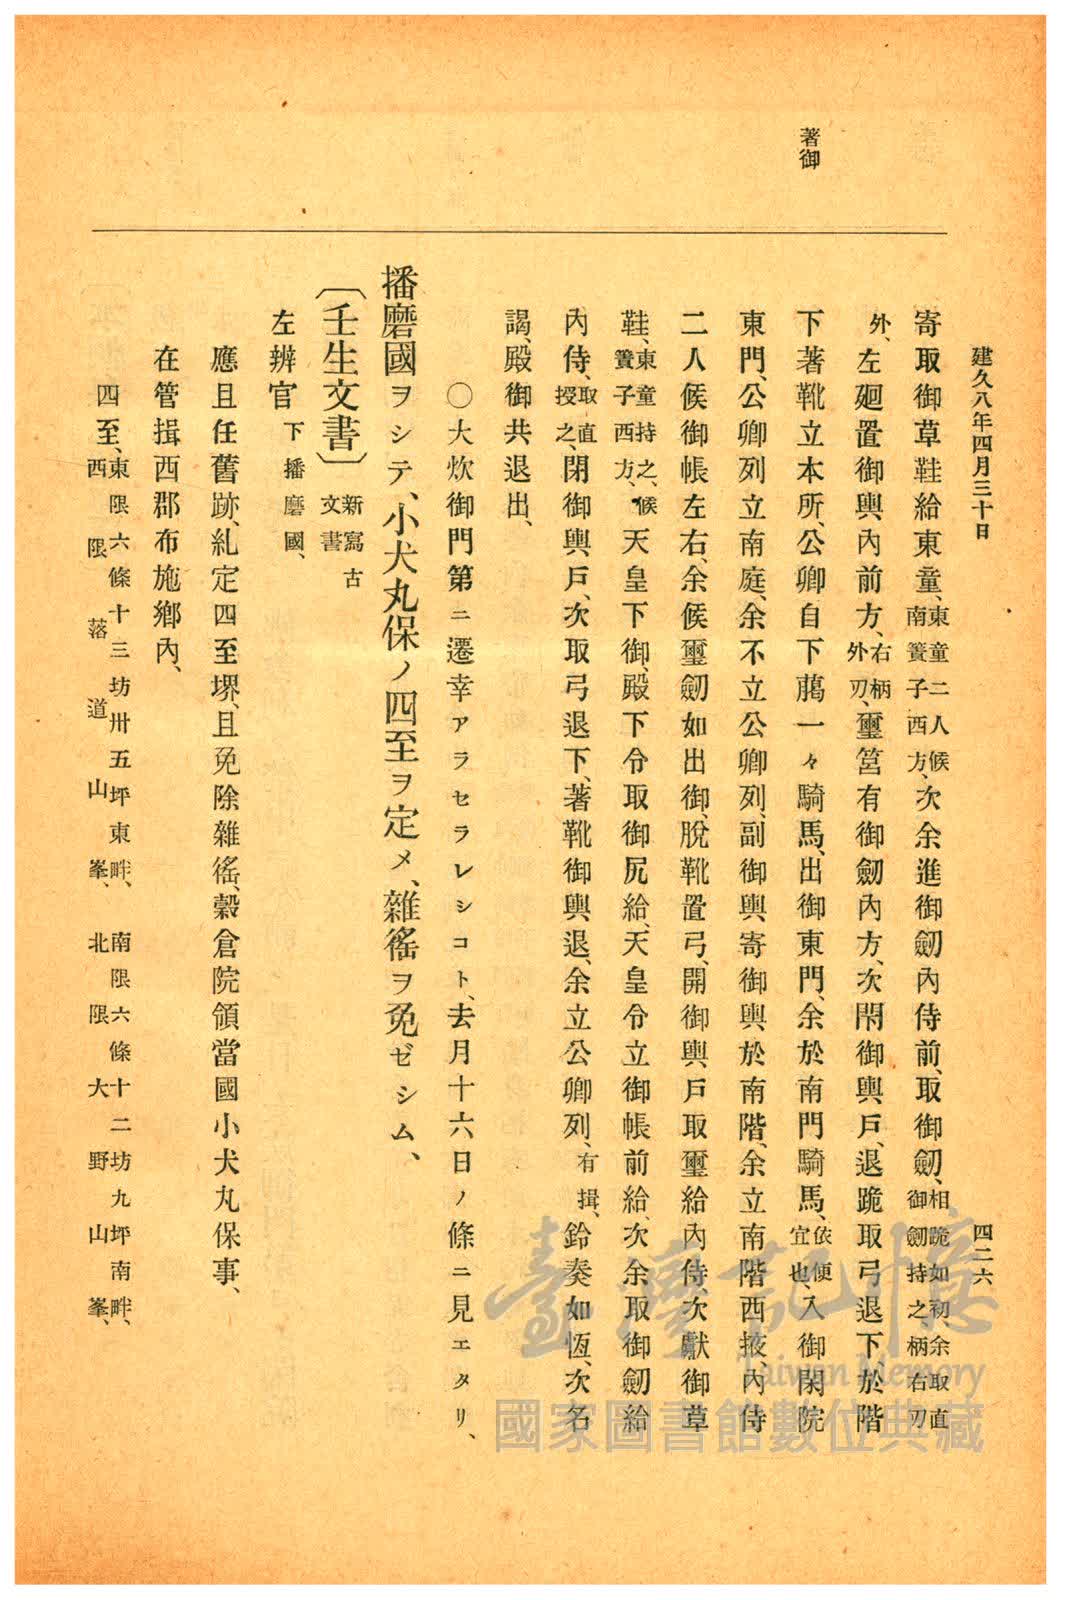 建久八年四月三十日
四二六
著御
寄取御草鞋給東童、東童二人候南簀子西方、次余進御劒內侍前、取御劒、相跪如初、余取直御劒持之、柄右刃
外、左廻置御輿內前方、右柄外刃、璽筥有御劒內方、次閇御輿戶、退跪取弓退下於階
下著靴立本所、公卿自下﨟一々騎馬、出御東門、余於南門騎馬、依便宜也、入御閑院
東門、公卿列立南庭、余不立公卿列、副御輿、寄御輿於南階、余立南階西掖、內侍
二人候御帳左右、余候璽劒如出御、脫靴置弓、開御輿戶取璽給內侍、次獻御草
鞋、東童持之、候簀子西方、天皇下御、殿下令取御尻給、天皇令立御帳前給、次余取御劒給
內侍、取直授之、閉御輿戶、次取弓退下、著靴御輿退、余立公卿列、有揖、鈴奏如恆、次名
謁、殿御共退出、
〇大炊御門第ニ遷幸アラセラレシコト、去月十六日ノ條ニ見エタリ、
播磨國ヲシテ、小犬丸保ノ四至ヲ定メ、雜徭ヲ免ゼシム、
〔壬生文書〕新寫古文書
左辨官下播磨國、
應且任舊跡、糺定四至堺、且免除雜徭、穀倉院領當國小犬丸保事、
在管揖西郡布施鄉內、
四至、東限六條十三坊卅五坪東畔、南限六條十二坊九坪南畔、
西限落道山峯、北限大野山峯、
臺灣記憶
Taiwan Memory
國家圖書館數位典藏